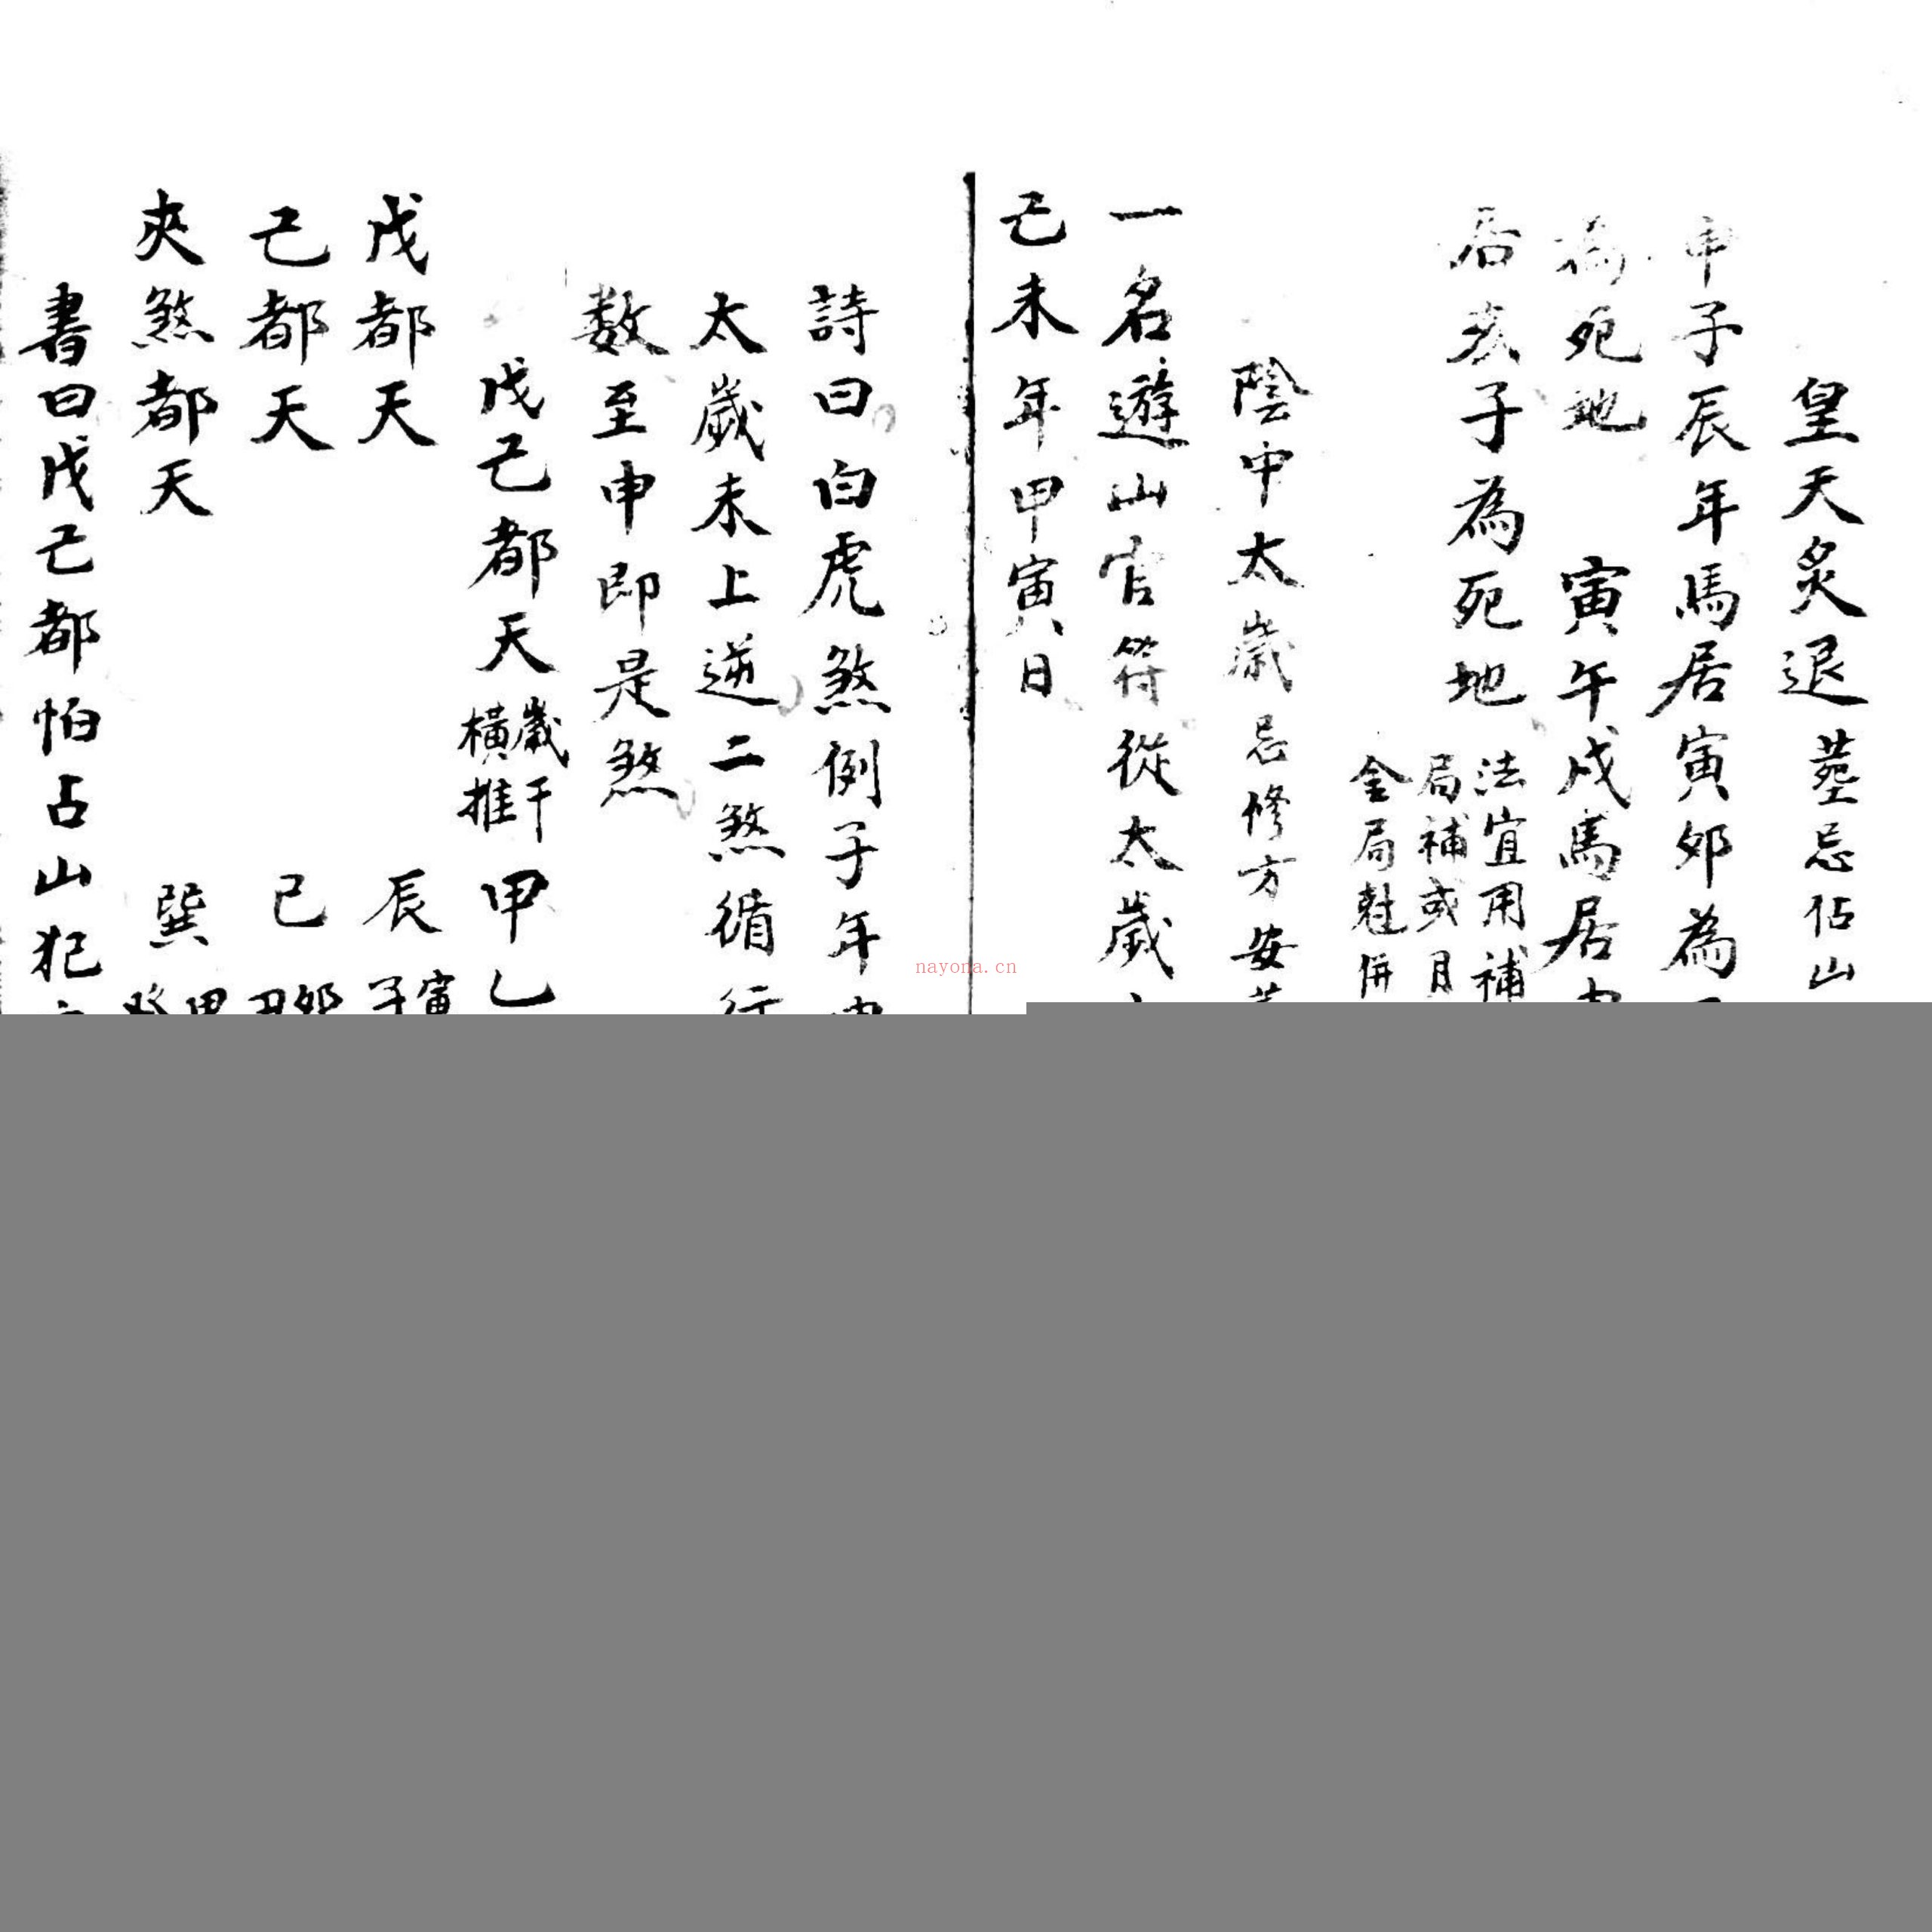 皇天炙退 塟忌佔山
申子辰年馬居寅邜為
為死地 寅午戌馬居
居亥子為死地 法宜用補
局補或月
金局尅併
陰中太歲 忌修方安
一名遊山官符從太歲
己未年甲寅日
詩曰白虎煞例子年
太歲未上逆二煞循行
数至申即是煞
戊己都天 歲干
橫推 甲乙
戊都天 辰 寅
子
己都天 巳 邜
丑
夾煞都天 巽 甲
癸
書曰戊己都怕占山犯
nayona.cn